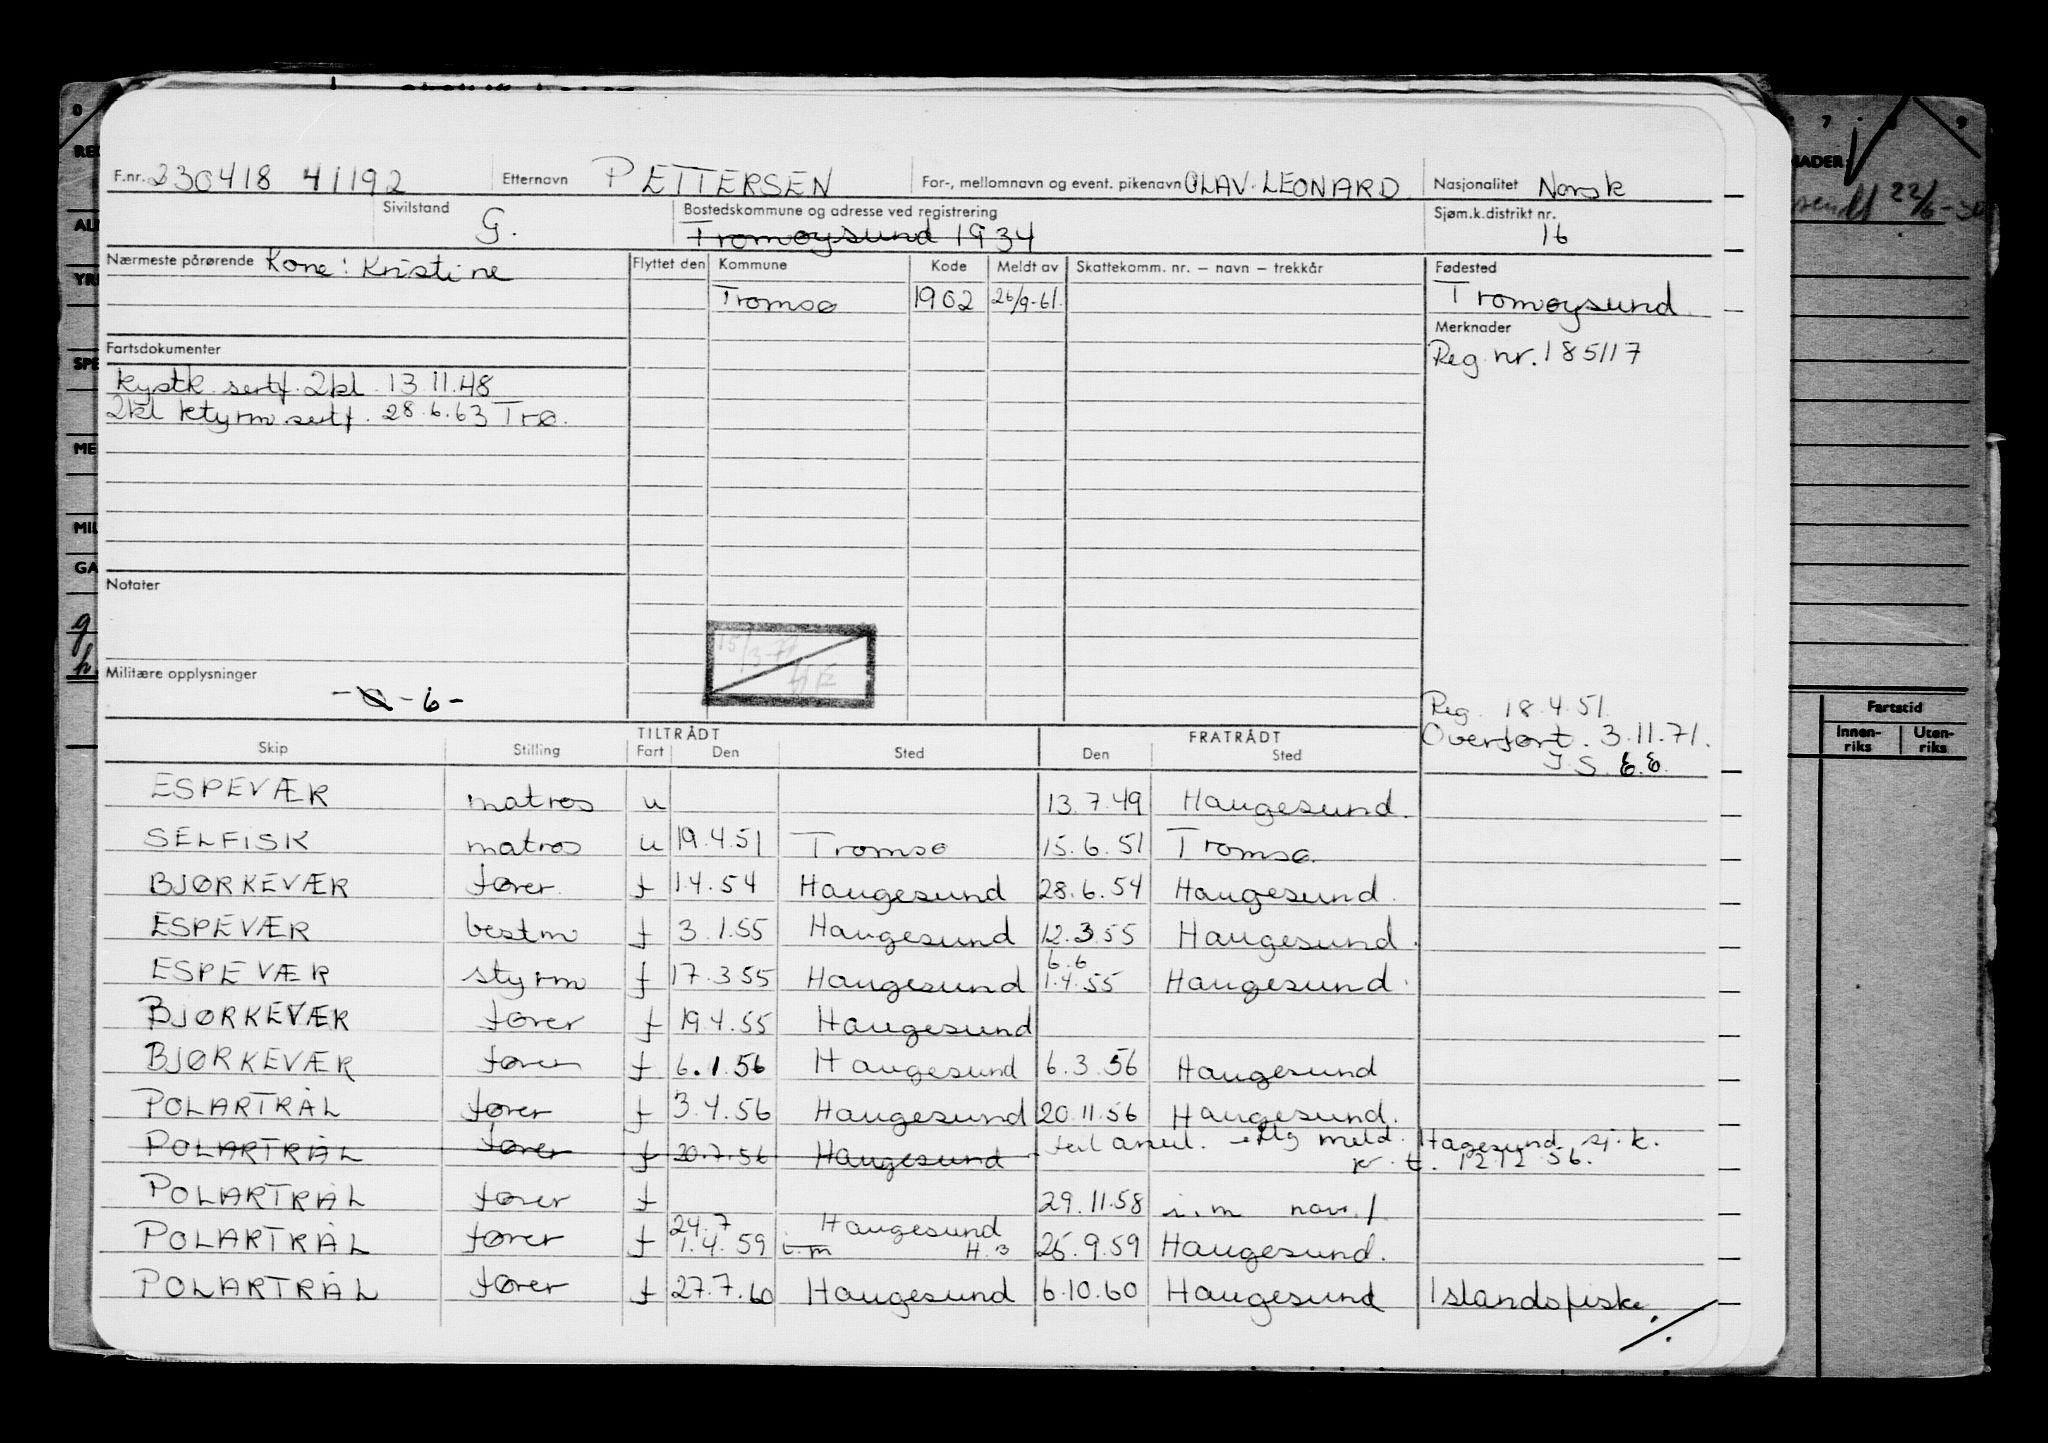 F.nr. 230418 41192 Etternavn PETTERSEN For-, mellomnavn og event. pikenavn OLAV LEONARD Nasjonalitet Norsk
Sivilstand G. Bostedskommune og adresse ved registrering Tromøysund 1934 Sjøm.k.distrikt nr. 16
Nærmeste pårørende Kone: Kristine Flyttet den Kommune Kode Meldt av Skattekomm. nr. – navn – trekkår Fødested
Tromsø 1902 26/9-61. Tromøysund
Merknader
Fartsdokumenter Reg. nr. 185117
kystk. sertf. 2kl. 13.11.48
2kl kstyrm sertf. 28.6.63 Trø.
Notater
15/3-71
Militære opplysninger
-6-
Reg. 18.4.51.
Overført. 3.11.71.
J.S. E.E.
TILTRÅDT FRATRÅDT
Skip Stilling Fart Den Sted Den Sted
ESPEVÆR matros u 13.7.49 Haugesund.
SELFISK matros u 19.4.51 Tromsø 15.6.51 Tromsø
BJØRKEVÆR fører. f 1.4.54 Haugesund 28.6.54 Haugesund.
ESPEVÆR bestm f 3.1.55 Haugesund 12.3.55 Haugesund.
6.6
ESPEVÆR styrm f 17.3.55 Haugesund 1.4.55 Haugesund.
BJØRKEVÆR fører f 19.4.55 Haugesund
BJØRKEVÆR fører f 6.1.56 Haugesund 6.3.56 Haugesund
POLARTRÅL fører f 3.4.56 Haugesund 20.11.56 Haugesund.
POLARTRÅL fører f 20.7.56 Haugesund feil anul. iflg meld. Hagesund sj.k.
12.12.56.
POLARTRÅL fører f 29.11.58 i.m nov.
24.7 Haugesund
POLARTRÅL fører f 1.4.59 i.m H.3 25.9.59 Haugesund.
POLARTRÅL fører f 27.7.60 Haugesund 6.10.60 Haugesund Islandsfiske
Fartstid
Innen-riks Uten-riks